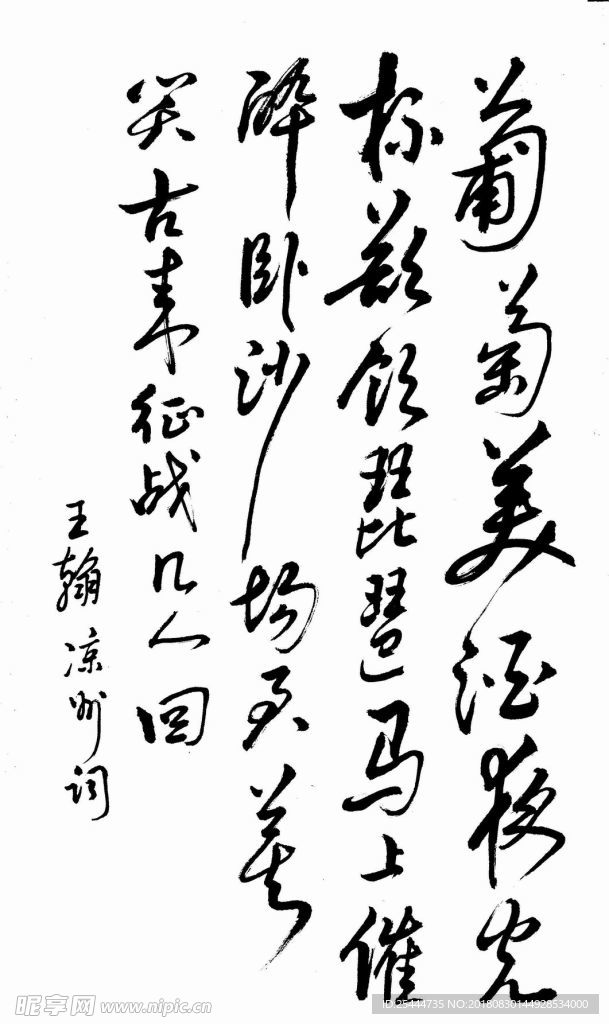 葡萄美酒夜光
杯欲饮琵琶马上催
醉卧沙场君莫
笑古来征战几人回
王翰凉州词
昵享网 www.nipic.cn
ID:25444735 NO:20180830144928534000